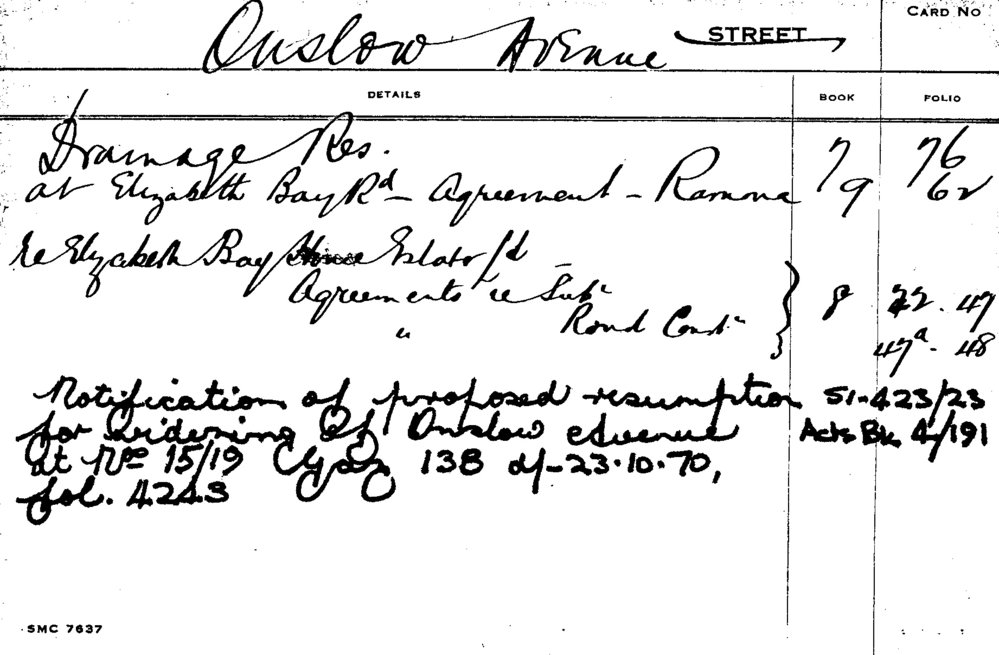 CARD NO
Onslow Avenue STREET
DETAILS BOOK FOLIO
Drainage Res. 7 76
at Elizabeth Bay Rd - Agreement - Ramona 9 62
re Elizabeth Bay Estate
Agreements re Subn 8 22. 47
" Road Constn 47a. 48
Notification of proposed resumption 51-423/23
for widening of Onslow Avenue Acts Bk 4/191
at Nos 15/19 Gaz 138 of-23.10.70,
fol. 4243
SMC 7637